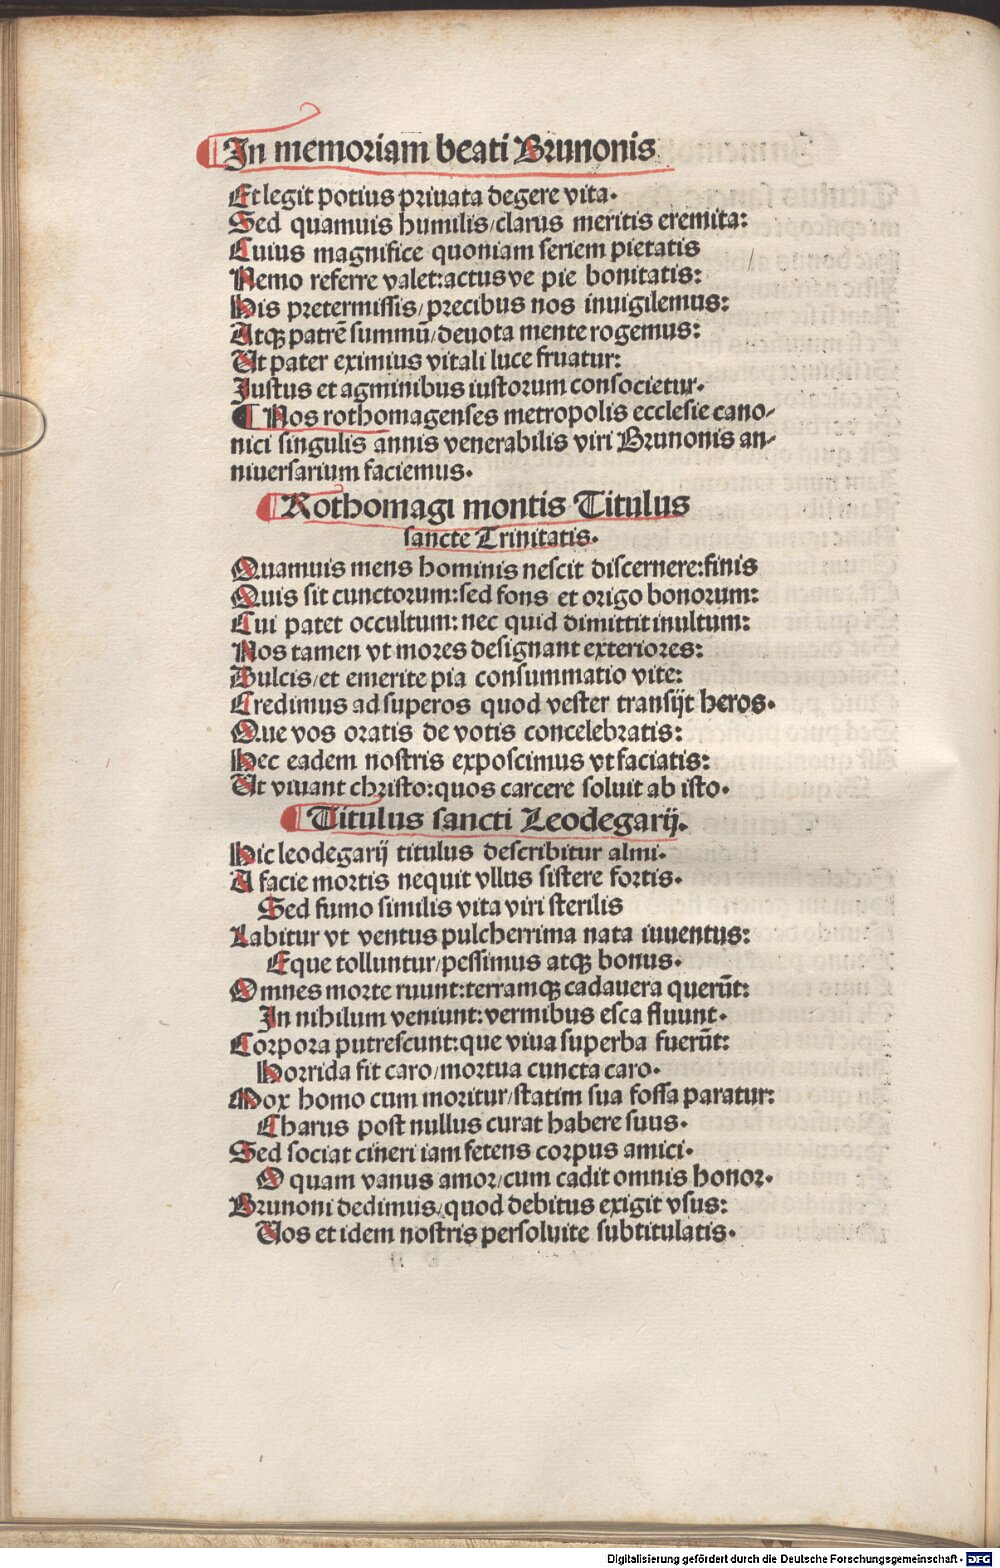 In memoriam beati Brunonis
Et legit potius priuata degere vita.
Sed quamuis humilis/clarus meritis eremita:
Cuius magnifice quoniam seriem pietatis
Nemo referre valet: actusve pie bonitatis:
His pretermissis/precibus nos inuigilemus:
Atqꝫ patrē summū/deuota mente rogemus:
Ut pater eximius vitali luce fruatur:
Justus et agminibus iustorum consocietur.
¶ Nos rothomagenses metropolis ecclesie cano/
nici singulis annis venerabilis viri Brunonis an/
niuersarium faciemus.
Rothomagi montis Titulus
sancte Trinitatis.
Quamuis mens hominis nescit discernere: finis
Quis sit cunctorum: sed fons et origo bonorum:
Cui patet occultum: nec quid dimittit inultum:
Nos tamen vt mores designant exteriores:
Dulcis/et emerite pia consummatio vite:
Credimus ad superos quod vester transijt heros.
Que vos oratis de votis concelebratis:
Hec eadem nostris exposcimus vt faciatis:
Ut viuant christo: quos carcere soluit ab isto.
Titulus sancti Leodegarij.
Hic leodegarij titulus describitur almi.
A facie mortis nequit vllus sistere fortis.
Sed fumo similis vita viri sterilis
Labitur vt ventus pulcherrima nata iuuentus:
Eque tolluntur/pessimus atqꝫ bonus.
Omnes morte ruunt: terramqꝫ cadauera querūt:
In nihilum veniunt: vermibus esca fluunt.
Corpora putrescunt: que viua superba fuerūt:
Horrida fit caro/mortua cuncta caro.
Mox homo cum moritur/statim sua fossa paratur:
Charus post nullus curat habere suus.
Sed sociat cineri iam fetens corpus amici.
O quam vanus amor/cum cadit omnis honor.
Brunoni dedimus/quod debitus exigit vsus:
Uos et idem nostris persoluite subtitulatis.
Digitalisierung gefördert durch die Deutsche Forschungsgemeinschaft - DFG